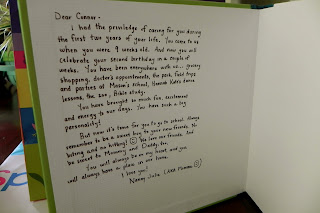 Dear Connor -
I had the privilege of caring for you during
the first two years of your life. You came to us
when you were 9 weeks old. And now you will
celebrate your second birthday in a couple of
weeks. You have been everywhere with us... grocery
shopping, doctor's appointments, the park, field trips
and parties at Mason's school, Hannah Kate's dance
lessons, the zoo, Bible study.
You have brought so much fun, excitement
and energy to our days. You have such a big
personality!
But now it's time for you to go to school. Always
remember to be a sweet boy to your new friends. No
biting and no hitting! We love our friends. And
be sweet to Mommy and Daddy, too.
You will always be in my heart, and you
will always have a place in our home.
I love you!
Nanny Julie (AKA Mamma)